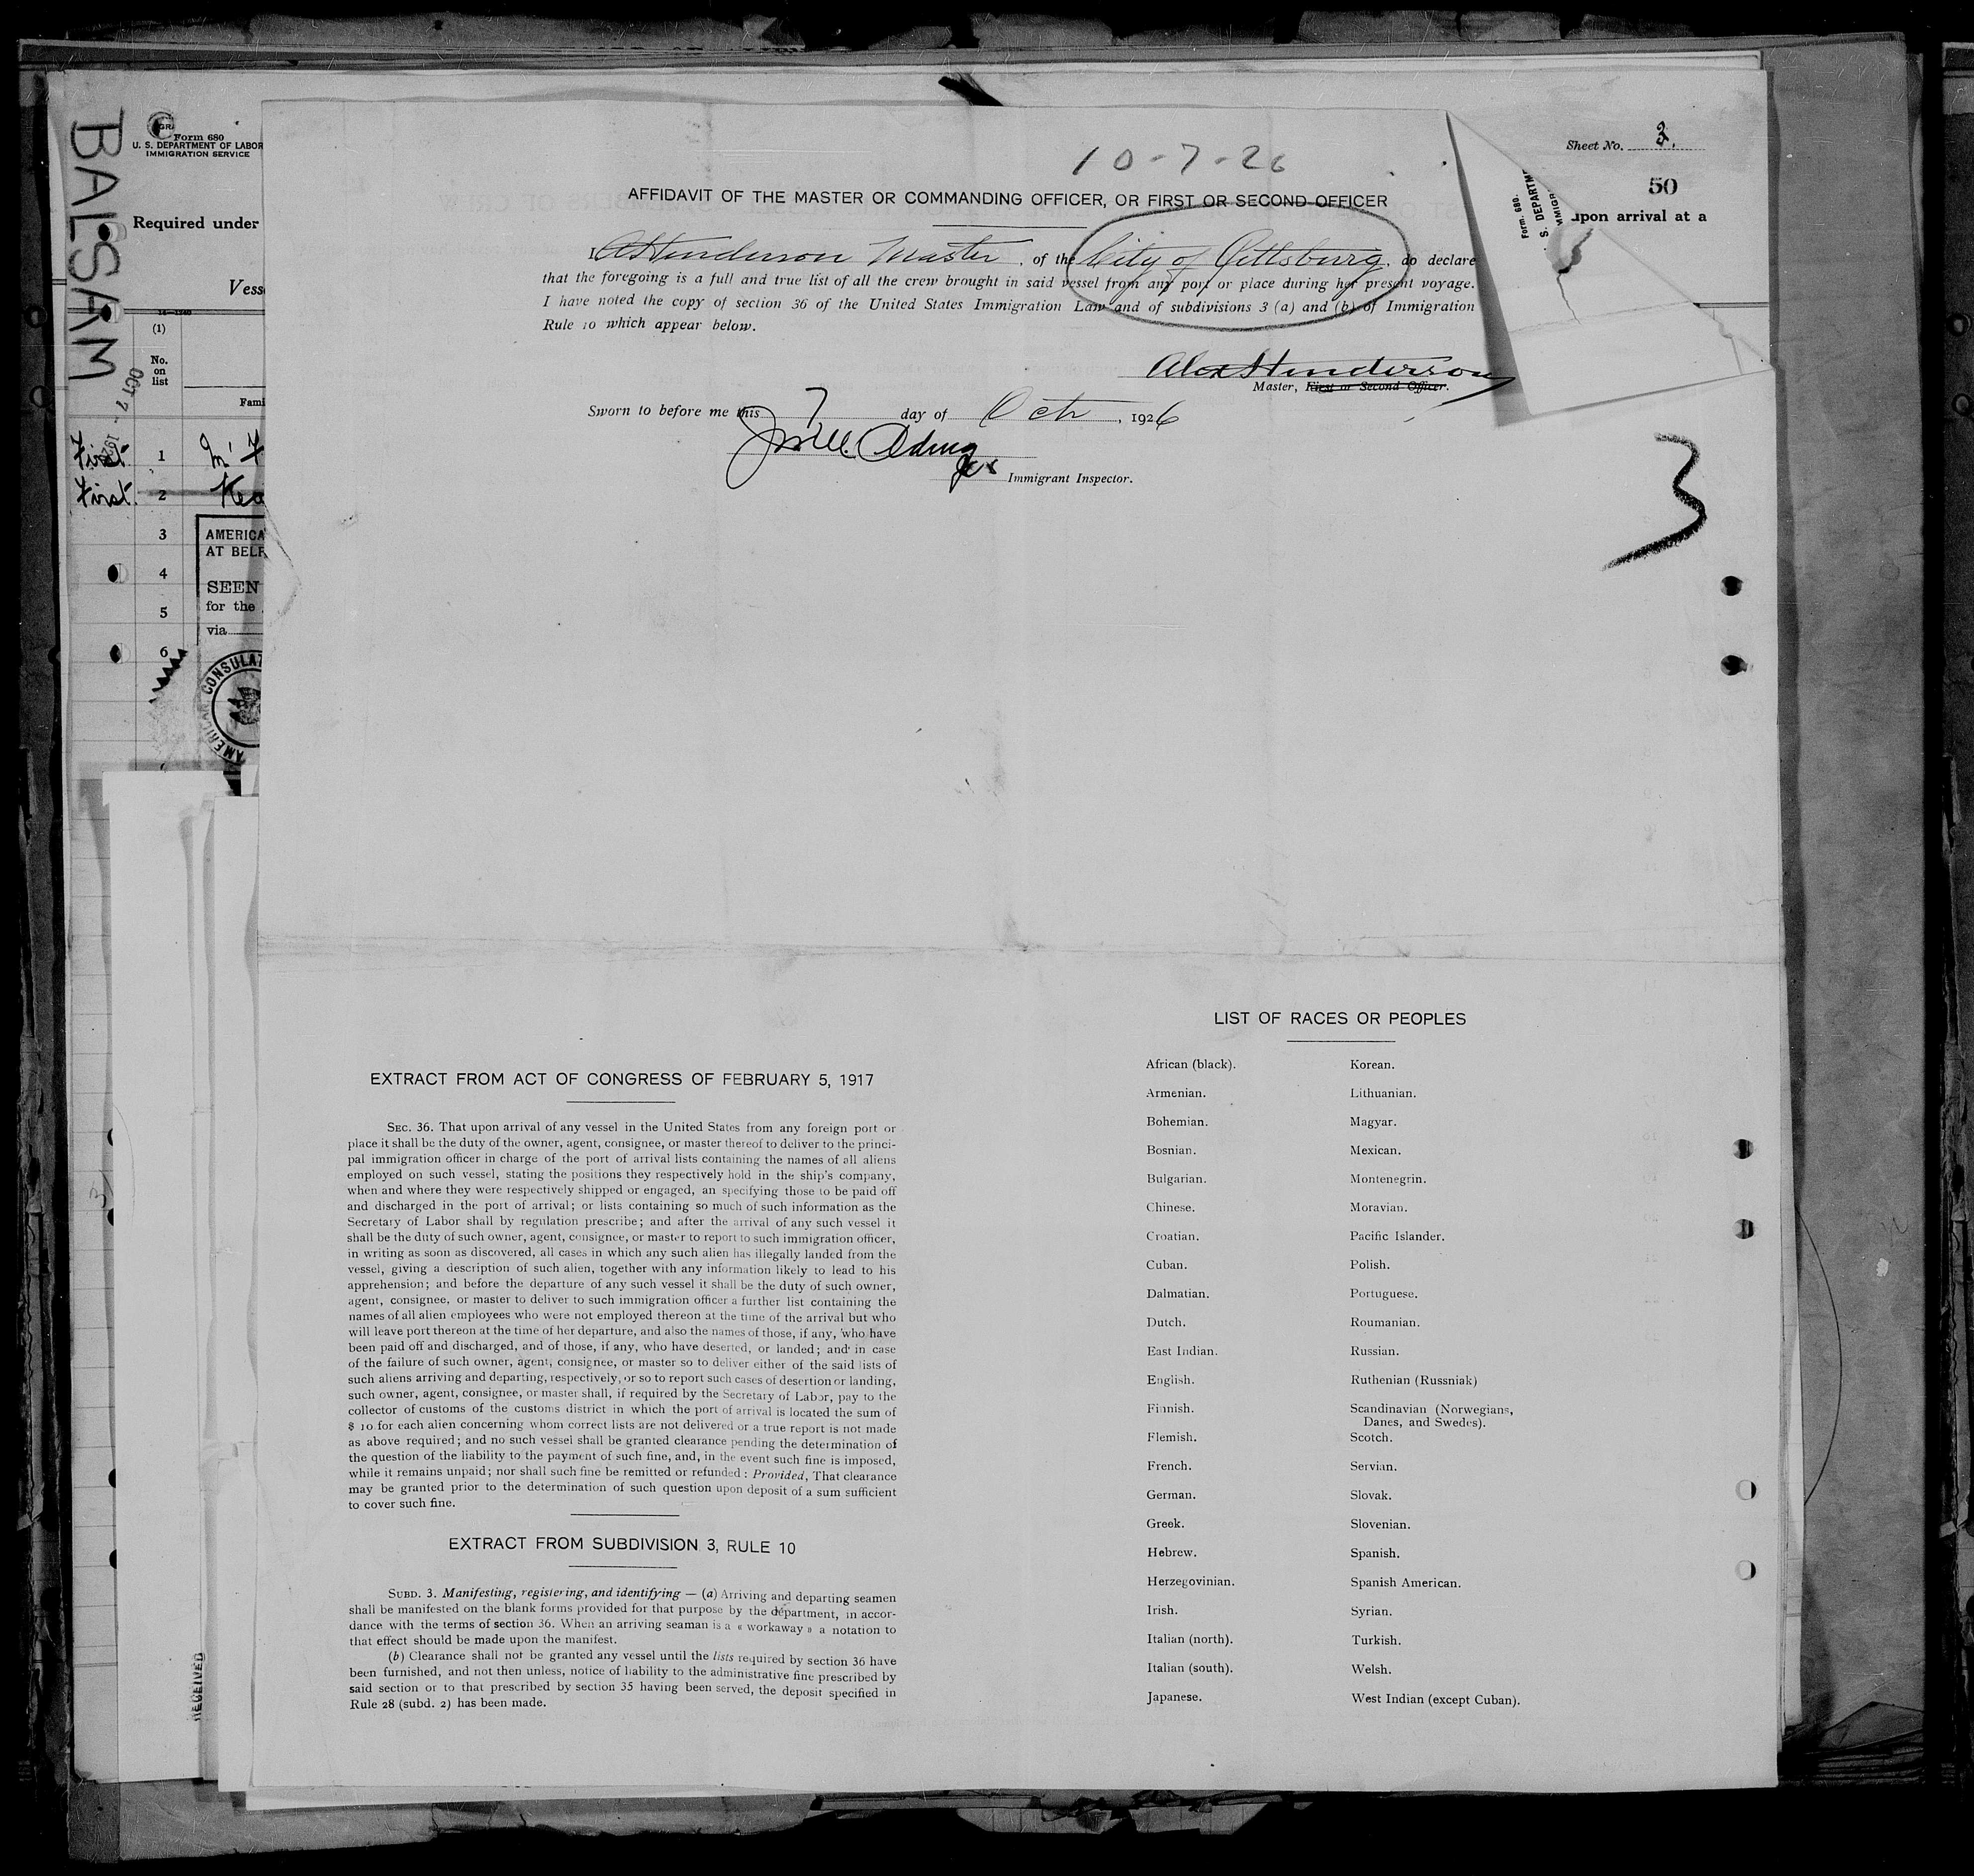 BALSAM
Form 680
U. S. DEPARTMENT OF LABOR
IMMIGRATION SERVICE
Required under
Vess
(1)
No.
on
list
Fami
OCT 7 - 192
First. 1 Mc F
First. 2 Kea
3
4
5
6
AMERICA
AT BELF
SEEN
for the
via
AMERICAN CONSULAT
RECEIVED
Sheet No. 2.
50
upon arrival at a
Form. 680.
S. DEPARTME
IMMIGRA
3
10-7-26
AFFIDAVIT OF THE MASTER OR COMMANDING OFFICER, OR FIRST OR SECOND OFFICER
I A Henderson Master, of the City of Pittsburg, do declare
that the foregoing is a full and true list of all the crew brought in said vessel from any port or place during her present voyage.
I have noted the copy of section 36 of the United States Immigration Law and of subdivisions 3 (a) and (b) of Immigration
Rule 10 which appear below.
Alex Henderson
Master, First or Second Officer.
Sworn to before me this 7 day of Oct, 1926
Immigrant Inspector.
EXTRACT FROM ACT OF CONGRESS OF FEBRUARY 5, 1917
SEC. 36. That upon arrival of any vessel in the United States from any foreign port or
place it shall be the duty of the owner, agent, consignee, or master thereof to deliver to the princi-
pal immigration officer in charge of the port of arrival lists containing the names of all aliens
employed on such vessel, stating the positions they respectively hold in the ship's company,
when and where they were respectively shipped or engaged, an specifying those to be paid off
and discharged in the port of arrival; or lists containing so much of such information as the
Secretary of Labor shall by regulation prescribe; and after the arrival of any such vessel it
shall be the duty of such owner, agent, consignee, or master to report to such immigration officer,
in writing as soon as discovered, all cases in which any such alien has illegally landed from the
vessel, giving a description of such alien, together with any information likely to lead to his
apprehension; and before the departure of any such vessel it shall be the duty of such owner,
agent, consignee, or master to deliver to such immigration officer a further list containing the
names of all alien employees who were not employed thereon at the time of the arrival but who
will leave port thereon at the time of her departure, and also the names of those, if any, who have
been paid off and discharged, and of those, if any, who have deserted, or landed; and in case
of the failure of such owner, agent, consignee, or master so to deliver either of the said lists of
such aliens arriving and departing, respectively, or so to report such cases of desertion or landing,
such owner, agent, consignee, or master shall, if required by the Secretary of Labor, pay to the
collector of customs of the customs district in which the port of arrival is located the sum of
$ 10 for each alien concerning whom correct lists are not delivered or a true report is not made
as above required; and no such vessel shall be granted clearance pending the determination of
the question of the liability to the payment of such fine, and, in the event such fine is imposed,
while it remains unpaid; nor shall such fine be remitted or refunded : Provided, That clearance
may be granted prior to the determination of such question upon deposit of a sum sufficient
to cover such fine.
EXTRACT FROM SUBDIVISION 3, RULE 10
SUBD. 3. Manifesting, registering, and identifying — (a) Arriving and departing seamen
shall be manifested on the blank forms provided for that purpose by the department, in accor-
dance with the terms of section 36. When an arriving seaman is a « workaway » a notation to
that effect should be made upon the manifest.
(b) Clearance shall not be granted any vessel until the lists required by section 36 have
been furnished, and not then unless, notice of liability to the administrative fine prescribed by
said section or to that prescribed by section 35 having been served, the deposit specified in
Rule 28 (subd. 2) has been made.
LIST OF RACES OR PEOPLES
African (black). Korean.
Armenian. Lithuanian.
Bohemian. Magyar.
Bosnian. Mexican.
Bulgarian. Montenegrin.
Chinese. Moravian.
Croatian. Pacific Islander.
Cuban. Polish.
Dalmatian. Portuguese.
Dutch. Roumanian.
East Indian. Russian.
English. Ruthenian (Russniak)
Finnish. Scandinavian (Norwegians,
Danes, and Swedes).
Flemish. Scotch.
French. Servian.
German. Slovak.
Greek. Slovenian.
Hebrew. Spanish.
Herzegovinian. Spanish American.
Irish. Syrian.
Italian (north). Turkish.
Italian (south). Welsh.
Japanese. West Indian (except Cuban).